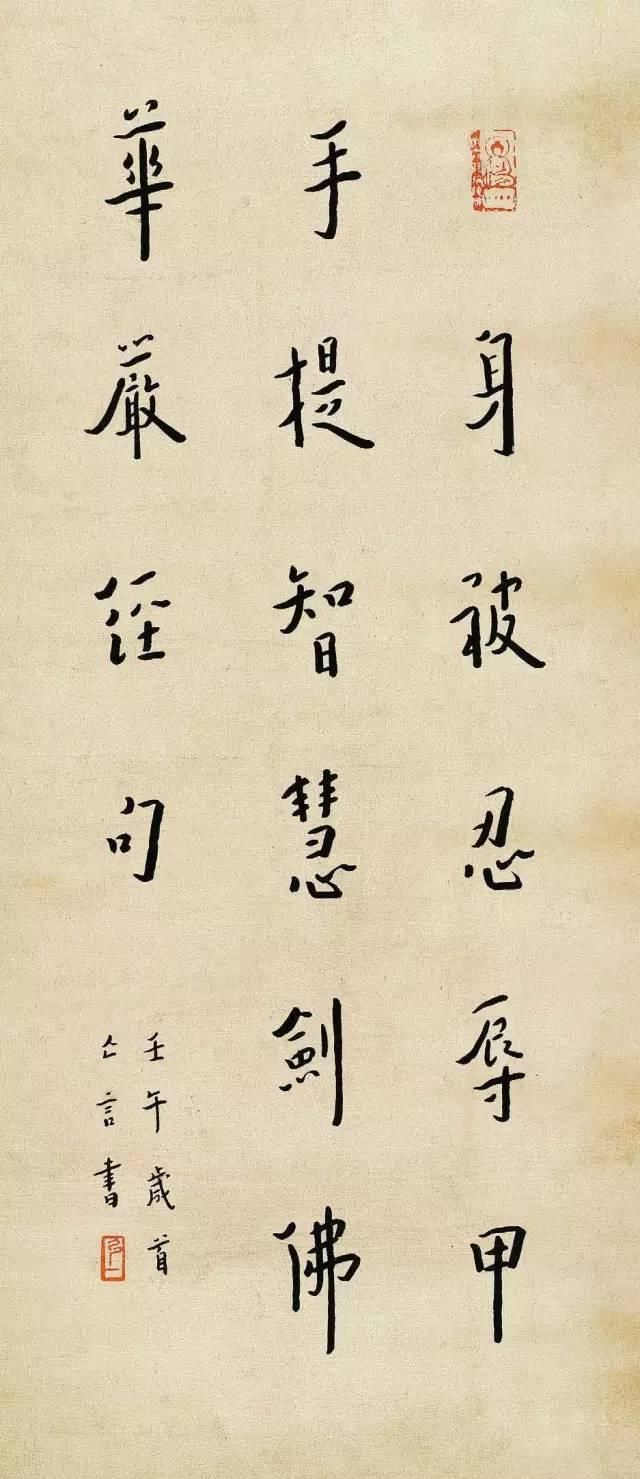 身被忍辱甲
手提智慧劍佛
華嚴經句
壬午歲首
亼言書